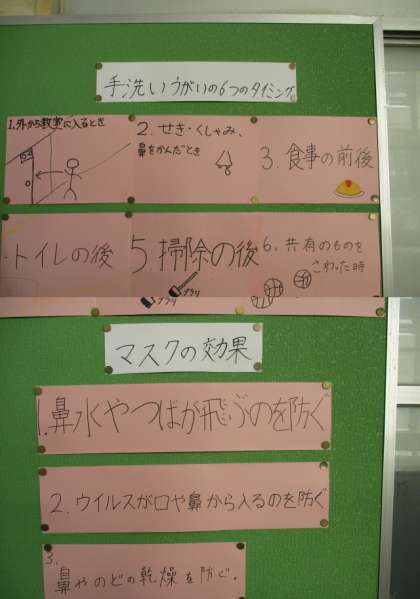 手洗いうがいの6つのタイミング
1.外から教室に入るとき
2.せき・くしゃみ、
鼻をかんだとき
3.食事の前後
トイレの後
5.掃除の後
6.共有のものを
さわった時
マスクの効果
1.鼻水やつばが飛ぶのを防ぐ
2.ウイルスが口や鼻から入るのを防ぐ
3.
鼻やのどの乾燥を防ぐ。